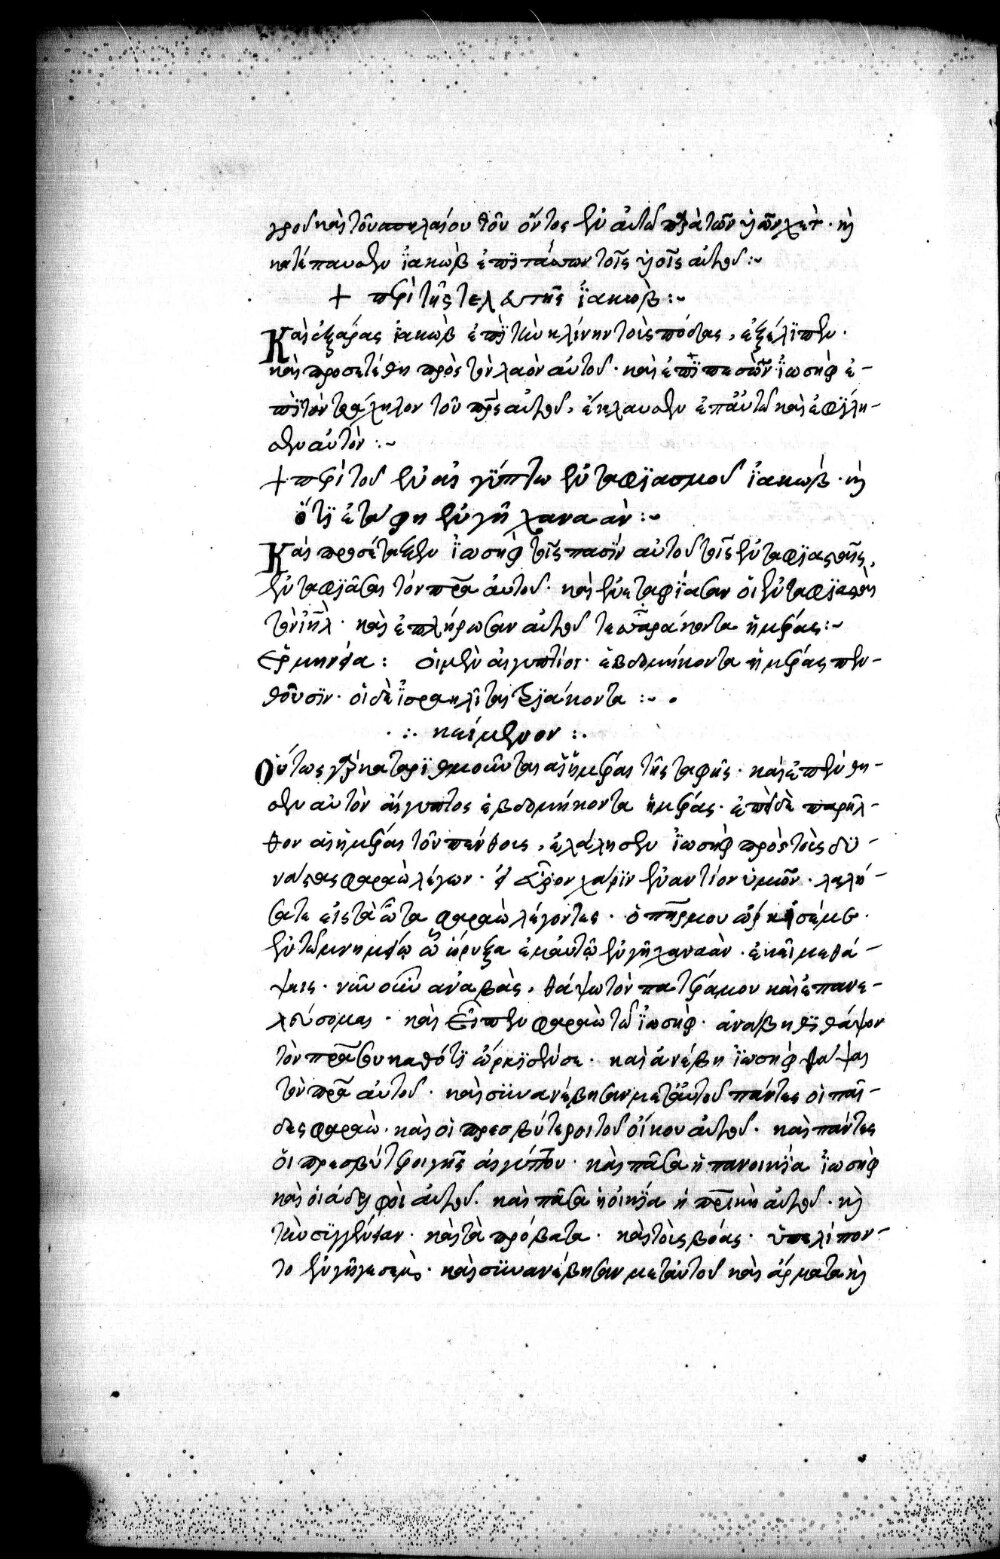 γροῦ καὶ τοῦ σπηλαίου τοῦ ὄντος ἐν αὐτῶ παρὰ τῶν ὑιῶν χὲτ · κὶ
κατέπαυσεν ἰακὼβ ἐπιτάσσων τοῖς ὑιοῖς αὐτοῦ :~
+ περὶ τῆς τελευτῆς ἰακώβ :~
Καὶ ἐξάρας ἰακὼβ ἐπὶ τὴν κλίνην τοὺς πόδας, ἐξέλιπεν ·
καὶ προσετέθη πρὸς τὸν λαὸν αὐτοῦ · καὶ ἐπιπεσὼν ἰωσὴφ ἐ-
πὶ τὸν τράχηλον τοῦ πρς αὐτοῦ, ἔκλαυσεν ἐπ' αὐτῶ καὶ ἐφίλη-
σεν αὐτόν :~
+ περὶ τοῦ ἐν αἰγύπτω ἐνταφιασμοῦ ἰακώβ · κὶ
ὅτι ἐτάφη ἐν γῆ χαναάν :~
Καὶ προσέταξεν ἰωσὴφ τοῖς παισὶν αὐτοῦ τοῖς ἐνταφιασταῖς,
ἐνταφιᾶσαι τὸν πρα αὐτοῦ · καὶ ἐνεταφίασαν οἱ ἐνταφιασταὶ
τὸν ιηλ · καὶ ἐπλήρωσαν αὐτοῦ τεσσαράκοντα ἡμέρας :~
Ἑρμηνεία : οἱ μὲν αἰγύπτιοι · ἑβδομήκοντα ἡμέρας πεν-
θοῦσιν · οἱ δὲ ἰσραηλῖται τριάκοντα :~ ·
· :· κείμενον :·
Οὕτως γὰρ καταριθμοῦνται αἱ ἡμέραι τῆς ταφῆς · καὶ ἐπένθη-
σεν αὐτὸν αἴγυπτος ἑβδομήκοντα ἡμέρας · ἐπεὶ δὲ παρῆλ-
θον αἱ ἡμέραι τοῦ πένθους, ἐλάλησεν ἰωσὴφ πρὸς τοὺς δυ-
νάστας φαραὼ λέγων · εἰ εὗρον χάριν ἐναντίον ὑμῶν · λαλή-
σατε εἰς τὰ ὦτα φαραὼ λέγοντες · ὁ πήρ μου ὥρκισέ με ·
ἐν τῶ μνημείω ὧ ὤρυξα ἐμαυτῶ ἐν γῆ χαναὰν · ἐκεῖ με θά-
ψεις · νῦν οὖν ἀναβὰς, θάψω τὸν πατέρα μου καὶ ἐπανε-
λεύσομαι · καὶ εἶπεν φαραὼ τῶ ἰωσὴφ · ἀνάβηθι θάψον
τὸν πρα σου καθότι ὥρκισέν σε · καὶ ἀνέβη ἰωσὴφ θάψαι
τὸν πρα αὐτοῦ · καὶ συνανέβησαν μετ' αὐτοῦ πάντες οἱ παῖ-
δες φαραὼ · καὶ οἱ πρεσβύτεροι τοῦ οἴκου αὐτοῦ · καὶ πάντες
οἱ πρεσβύτεροι γῆς αἰγύπτου · καὶ πᾶσα ἡ πανοικία ἰωσὴφ
καὶ οἱ ἀδελφοὶ αὐτοῦ · καὶ πᾶσα ἡ οἰκία ἡ πρικὴ αὐτοῦ · κὶ
τὴν συγγένειαν · καὶ τὰ πρόβατα · καὶ τοὺς βόας · ὑπελίπον-
το ἐν γῆ γεσὲμ · καὶ συνανέβησαν μετ' αὐτοῦ καὶ ἅρματα κὶ